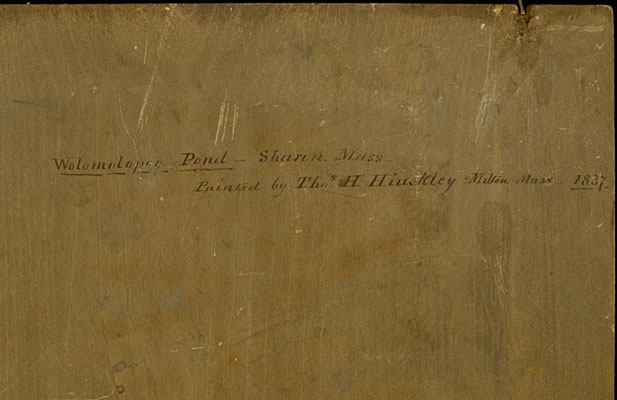 Wolomolopoag Pond - Sharon Mass -
Painted by Thos H Hinckley - Milton Mass - 1837.